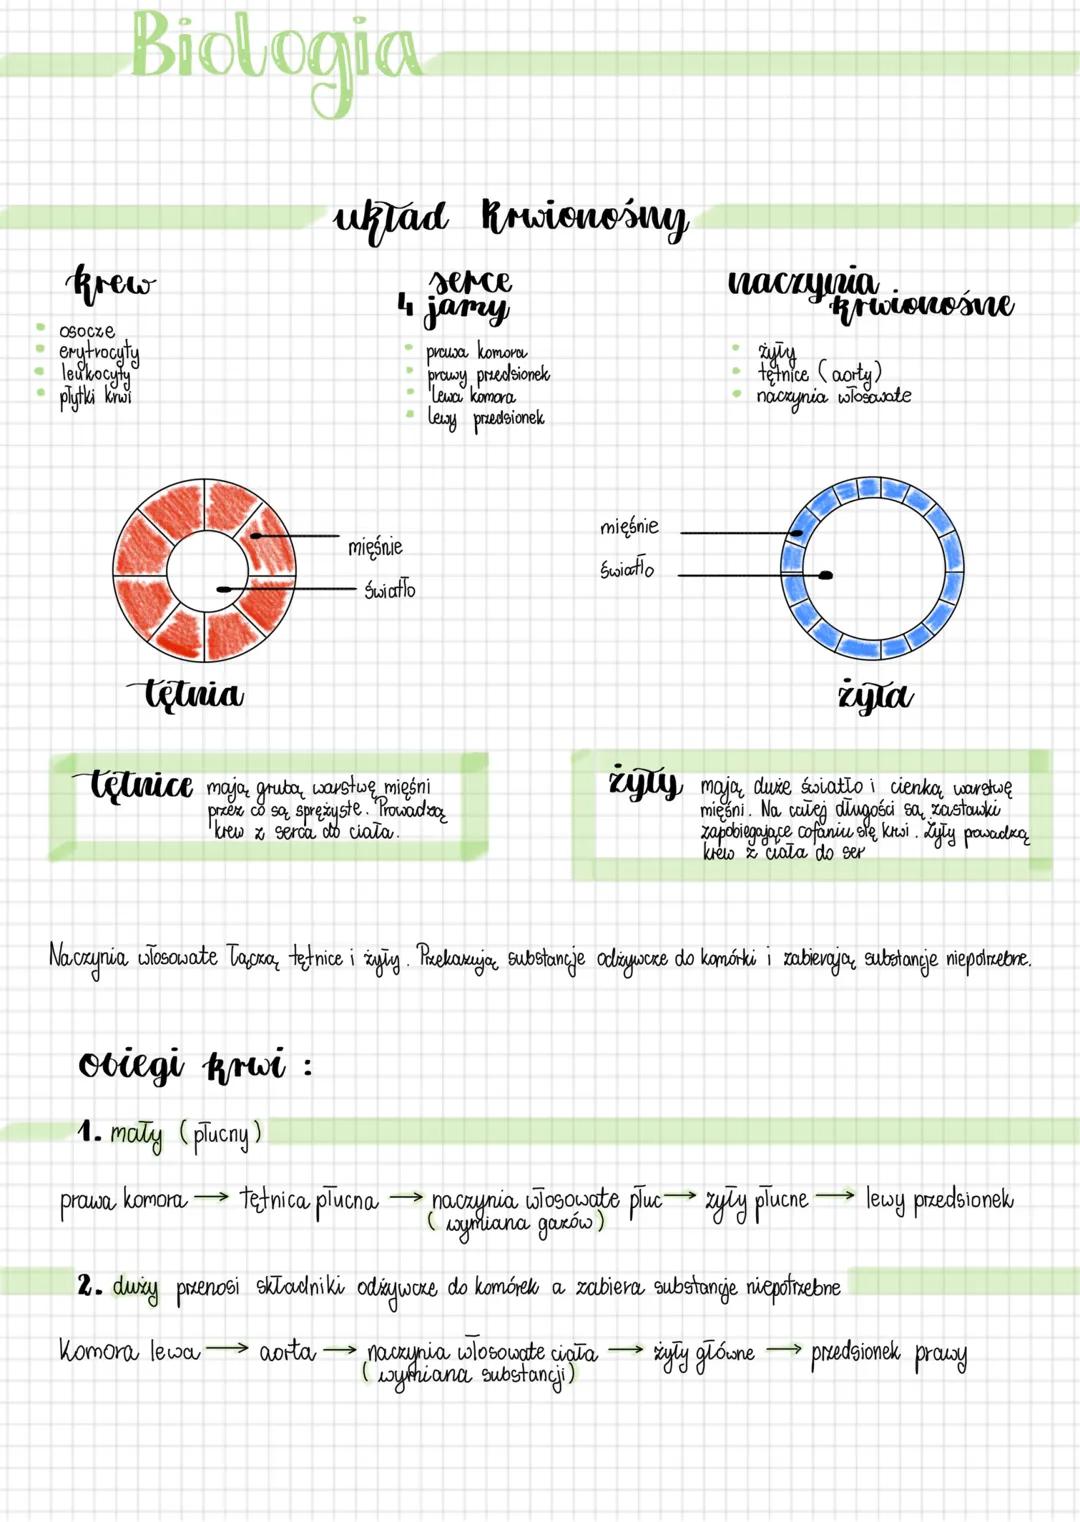 Biologia
układ krwionośny
krew
osocze
erytrocyty
leukocyty
płytki krwi
serce
4 jamy
prawa komora
prawy przedsionek
lewa komora
lewy przedsionek
naczynia
krwionośne
żyły
tętnice (aorty)
naczynia włosowate
mięśnie
światło
tętnia
mięśnie
światło
żyła
tętnice mają grubą warstwę mięśni
przez co są sprężyste. Prowadzą
krew z serca do ciała.
żyły mają duże światło i cienką warstwę
mięśni. Na całej długości są zastawki
zapobiegające cofaniu się krwi. Żyły prowadzą
krew z ciała do ser
Naczynia włosowate łączą tętnice i żyły. Przekazują substancje odżywcze do komórki i zabierają substancje niepotrzebne.
obiegi krwi :
1. mały (płucny)
prawa komora → tętnica płucna → naczynia włosowate płuc → żyły płucne → lewy przedsionek
(wymiana gazów)
2. duży przenosi składniki odżywcze do komórek a zabiera substancje niepotrzebne
Komora lewa → aorta → naczynia włosowate ciała → żyły główne → przedsionek prawy
(wymiana substancji)